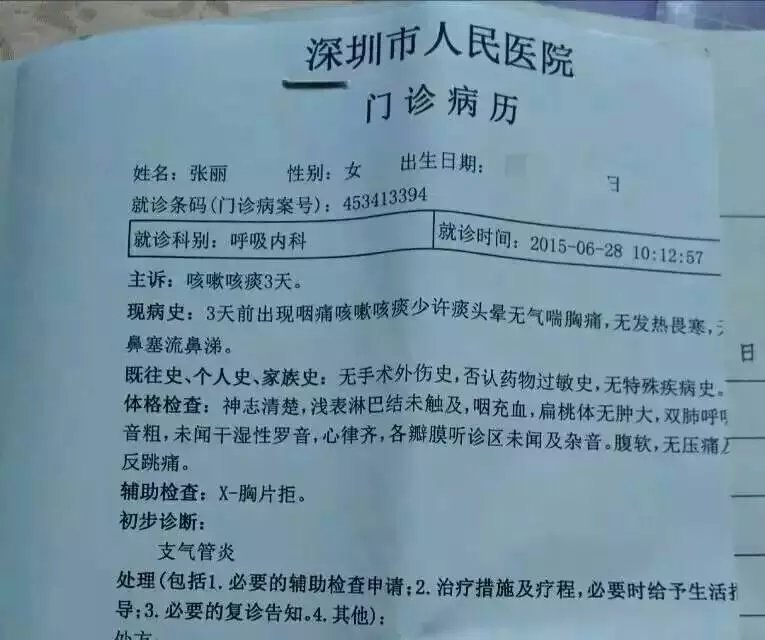 深圳市人民医院
门诊病历
姓名：张丽 性别：女 出生日期： 日
就诊条码(门诊病案号)：453413394
就诊科别：呼吸内科 就诊时间：2015-06-28 10:12:57
主诉：咳嗽咳痰3天。
现病史：3天前出现咽痛咳嗽咳痰少许痰头晕无气喘胸痛,无发热畏寒,
鼻塞流鼻涕。
既往史、个人史、家族史：无手术外伤史,否认药物过敏史,无特殊疾病史。
体格检查：神志清楚,浅表淋巴结未触及,咽充血,扁桃体无肿大,双肺呼
音粗,未闻干湿性罗音,心律齐,各瓣膜听诊区未闻及杂音。腹软,无压痛及
反跳痛。
辅助检查：X-胸片拒。
初步诊断：
支气管炎
处理(包括1.必要的辅助检查申请;2.治疗措施及疗程,必要时给予生活
导;3.必要的复诊告知。4.其他)：
日